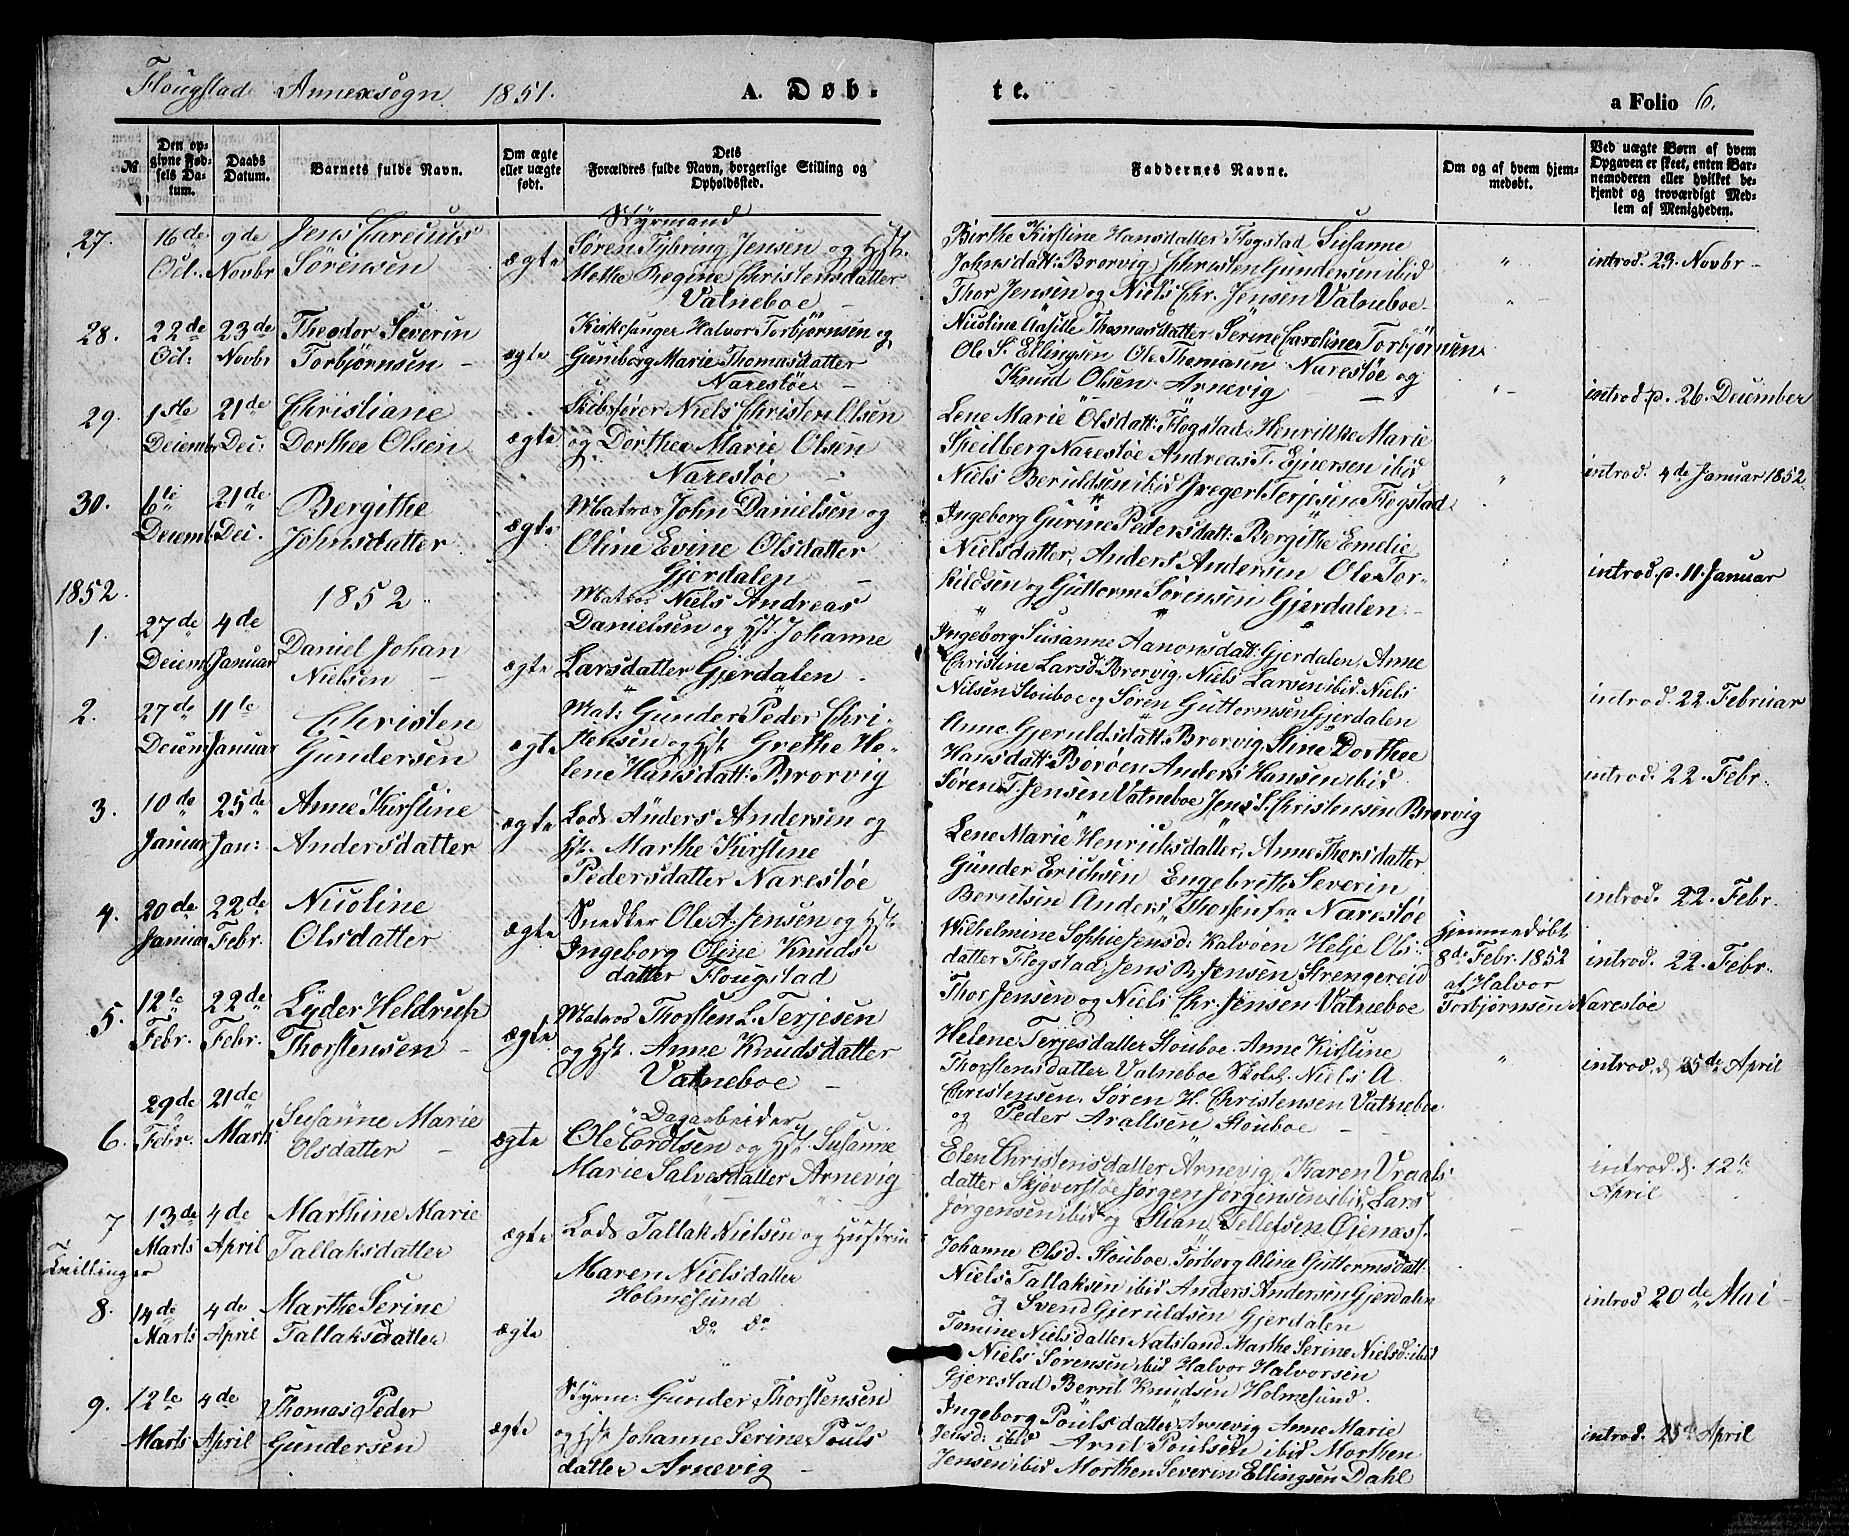 Flougstad Annexsogn 1851. A. Døb-
te. a Folio 6.
№
Den op-
givne Fød-
sels Da-
tum.
Daabs
Datum.
Barnets fulde Navn.
Om ægte
eller uægte
født.
Dets
Forældres fulde Navn, borgerlige Stilling og
Opholdssted.
Faddernes Navne.
Om og af hvem hjem-
medøbt.
Ved uægte Børn af hvem
Opgaven er skeet, enten Bar-
nemoderen eller hvilket be-
kjendt og troværdigt Med-
lem af Menigheden.
27.
16de
Oct.
9de
Novbr
Jens
Sørensen
ægte
Styrmand
Søren Jensen og Hst.
Methe Regine Christensdatter
Vatneboe
Birthe Kirstine Hansdatter Flogstad Susanne
Johnsdatt: Brorvig, Christen Gundersen ibid
Thor Jensen og Niels Chr. Jensen Vatneboe
"
introd. 23. Novbr
28.
22de
Oct:
23de
Novbr
Theodor Severin
Torbjørnsen
ægte
Kirkesanger Halvor Torbjørnsen og
Gunborg Marie Thomasdatter
Narestøe
Nicoline Thomasdatter Serine Caroline Torbjørnsen
Ole S. Ellingsen Ole Thomasen Narestøe og
Knud Olsen Arnevig
"
introd. p. 26. December
29.
1ste
Decembr
21de
Dec:
Christiane
Dorthea Olsen
ægte
Skibsfører Niels Christen Olsen
og Dorthea Marie Olsen
Narestøe
Lene Marie Olsdatt: Flogstad Henrikke Marie
Narestøe Andreas T. Ejnersen ibid
Niels ibid Gregert Terjesen Flogstad
"
introd. 4de Januar 1852.
30.
6te
Decemb
21de
Dec.
Bergithe
Johnsdatter
ægte
Matros John Danielsen og
Oline Evine Olsdatter
Gjerdalen
Ingeborg Gurine Pedersdatt: Bergithe Emelie
Nielsdatter, Anders Andersen Ole Tor-
kildsen og Guttorm Sørensen Gjerdalen
introd. p. 11. Januar
1852.
1852
1.
27de
Decemb
4de
Januar
Daniel Johan
Nielsen
ægte
Matros Niels Andreas
Danielsen og Hst. Johanne
Larsdatter Gjerdalen
Ingeborg Susanne Aanonsdatt: Gjerdalen, Anne
Christine Larsd. Brorvig, Niels Larsen ibid. Niels
Nilsen Stouboe og Søren Guttormsen Gjerdalen
introd. 22. Februar
2.
27de
Decemb
11te
Januar
Christen
Gundersen
ægte
Mat: Gunder Peder Chri-
stensen og Hst. Grethe He-
lene Hansdatt: Brorvig
Anne Gjeruldsdatt: Brorvig, Stine Dorthea
Hansdatt: Borøen Anders Hansen ibid
Søren T. Jensen Vatneboe Jens S. Christensen Brorvig
introd. 22. Febr.
3.
10de
Januar
25de
Jan:
Anne Kirstine
Andersdatter
ægte
Lods Anders Andersen og
Hst. Marthe Kirstine
Pedersdatter Narestøe
Lene Marie Henriksdatter, Anne Thorsdatter
Gunder Erichsen Engebreth Severin
Berntsen Anders Thorsen fra Narestøe
introd. 22. Febr.
4.
20de
Januar
22de
Febr.
Nicoline
Olsdatter
ægte
Snedker Ole A. Jensen og Hst.
Ingeborg Oline Knuds-
datter Flougstad
Wilhelmine Sophie Jensd. Kalvøen Helje Ols-
datter Flogstad, Jens B. Jensen Strengereid
Thor Jensen og Niels Chr. Jensen Vatneboe
Hjemmedøbt
8de Febr. 1852
af Halvor
Torbjørnsen Narestøe
introd. 22. Febr.
5.
12te
Febr.
22de
Febr.
Lyder
Thorstensen
ægte
Matros Thorsten L. Terjesen
og Hst. Anne Knudsdatter
Vatneboe
Helene Terjesdatter Stouboe. Anne Kirstine
Thorstensdatter Vatneboe Skolel. Niels A.
Christensen. Søren H. Christensen Vatneboe
og Peder Arallsen Stouboe
"
introd. d. 25de April
6.
29de
Febr.
21de
Marts
Susanne Marie
Olsdatter
ægte
Dagarbeider
Ole Cordtsen og Hst. Susanne
Marie Salvesdatter Arnevig
Elen Christensdatter Arnevig, Karen Vraals-
datter Skjoverstøe Jørgen Jørgensen ibid, Lars
Jørgensen ibid og Stian Tellefsen Øienas
introd. d. 12te
April
7
Tvillinger
13de
Marts
4de
April
Marthine Marie
Tallaksdatter
ægte
Lods Tallak Nielsen og Hustrue
Maren Nielsdatter
Holmesund
Johanne Olsd. Stouboe, Torborg Aline Guttormsdatt:
Niels Tallaksen ibid Anders Andersen Gjerdalen
og Svend Gjeruldsen Gjerdalen
introd 20de Mai
8.
14de
Marts
4de
April
Marthe Serine
Tallaksdatter
ægte
do do
Tomine Nielsdatter Natsland Marthe Serine Nielsd: ibid
Niels Sørensen ibid Halvor Halvorsen
Gjerestad Bernt Knudsen Holmesund.
9.
12te
Marts
4de
April
Thomas Peder
Gundersen
ægte
Styrm: Gunder Thorstensen
og Hst Johanne Serine Pouls-
datter Arnevig
Ingeborg Poulsdatter Arnevig Anne Marie
Jensd: ibid Arnt Poulsen ibid Morthen
Jensen ibid Morthen Severin Ellingsen Dahl
introd. 25de April